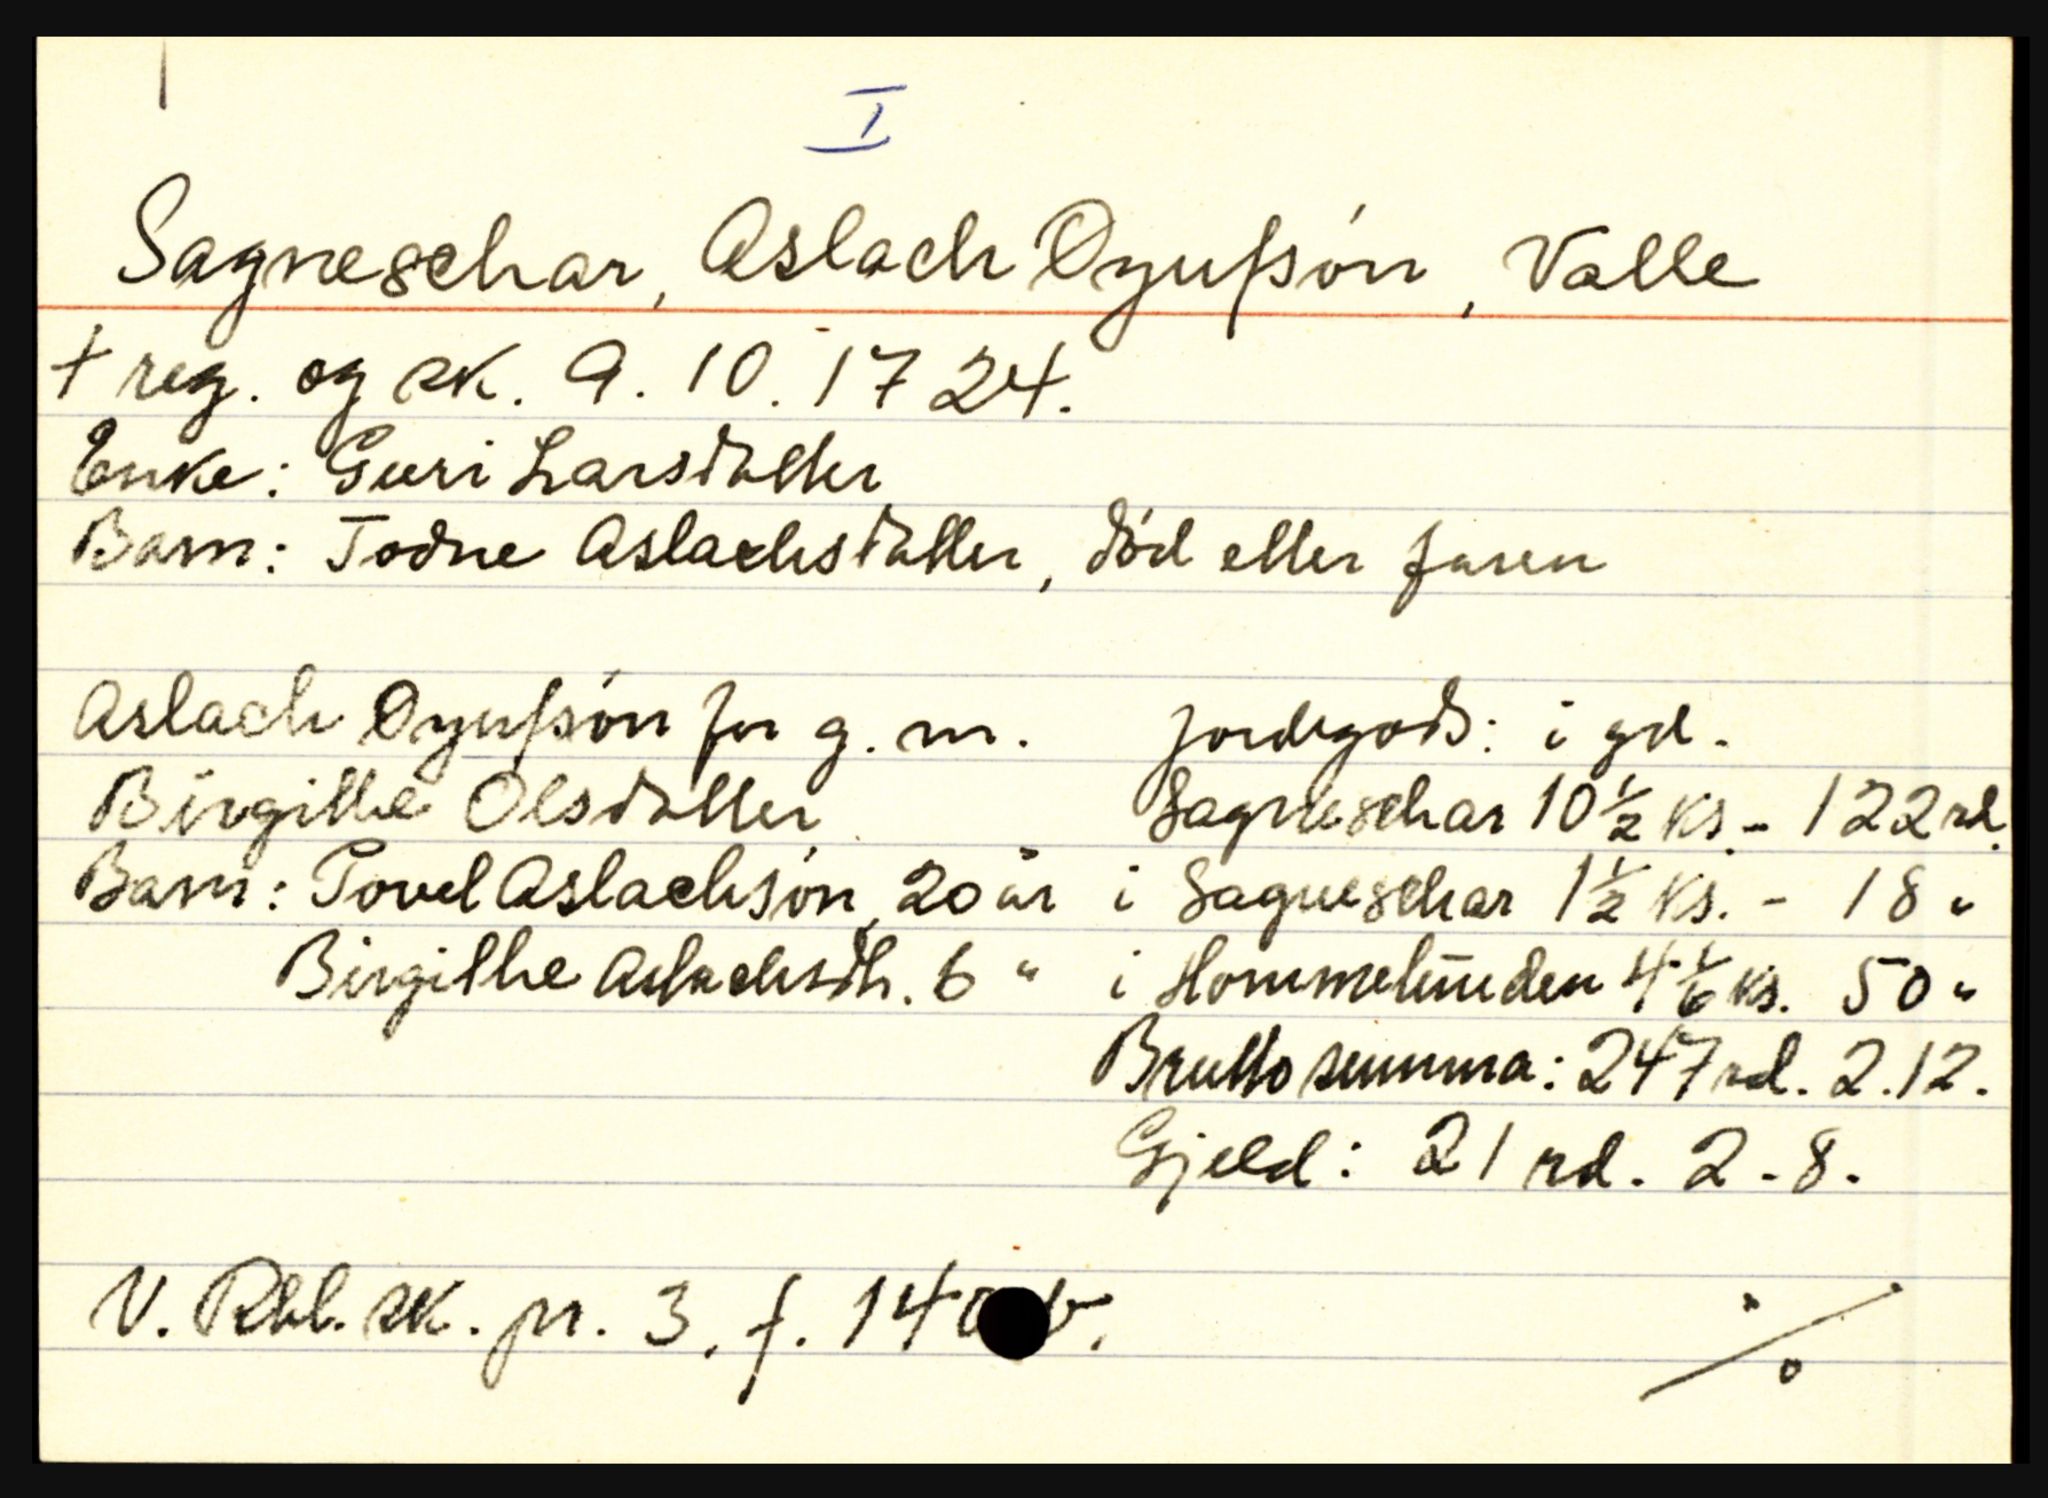 I
Sagneschar, Aslach Oyufsön, Valle
† reg. og sk. 9. 10. 1724.
Enke: Guri Larsdatter
Barn: Todne Aslachsdatter, död etter faren
Aslach Oyufsön før g. m.
Birgithe Olsdatter
Barn: Tovel Aslachsön, 20 år
Birgithe Aslachsdt. 6 "
Jordegods: i gd.
Sagneschar 10 1/2 ks. - 122 rd.
i Sagneschar 1 1/2 ks. - 18 "
i 4 1/6 ks. 50 "
Brutto summa: 247 rd. 2.12.
Gjeld: 21 rd. 2 - 8.
V. Rbl. sk. pr. 3, f. 140 b.